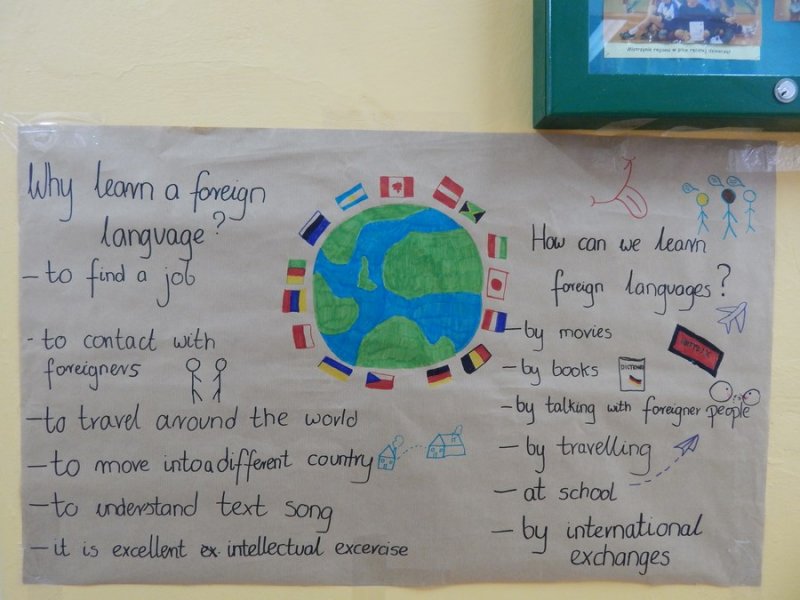 Why learn a foreign
language?
- to find a job
- to contact with
foreigners
- to travel around the world
- to move into a different country
- to understand text song
- it is excellent ex. intellectual excercise
How can we learn
foreign languages?
- by movies
- by books
- by talking with foreigner people
- by travelling
- at school
- by international
exchanges